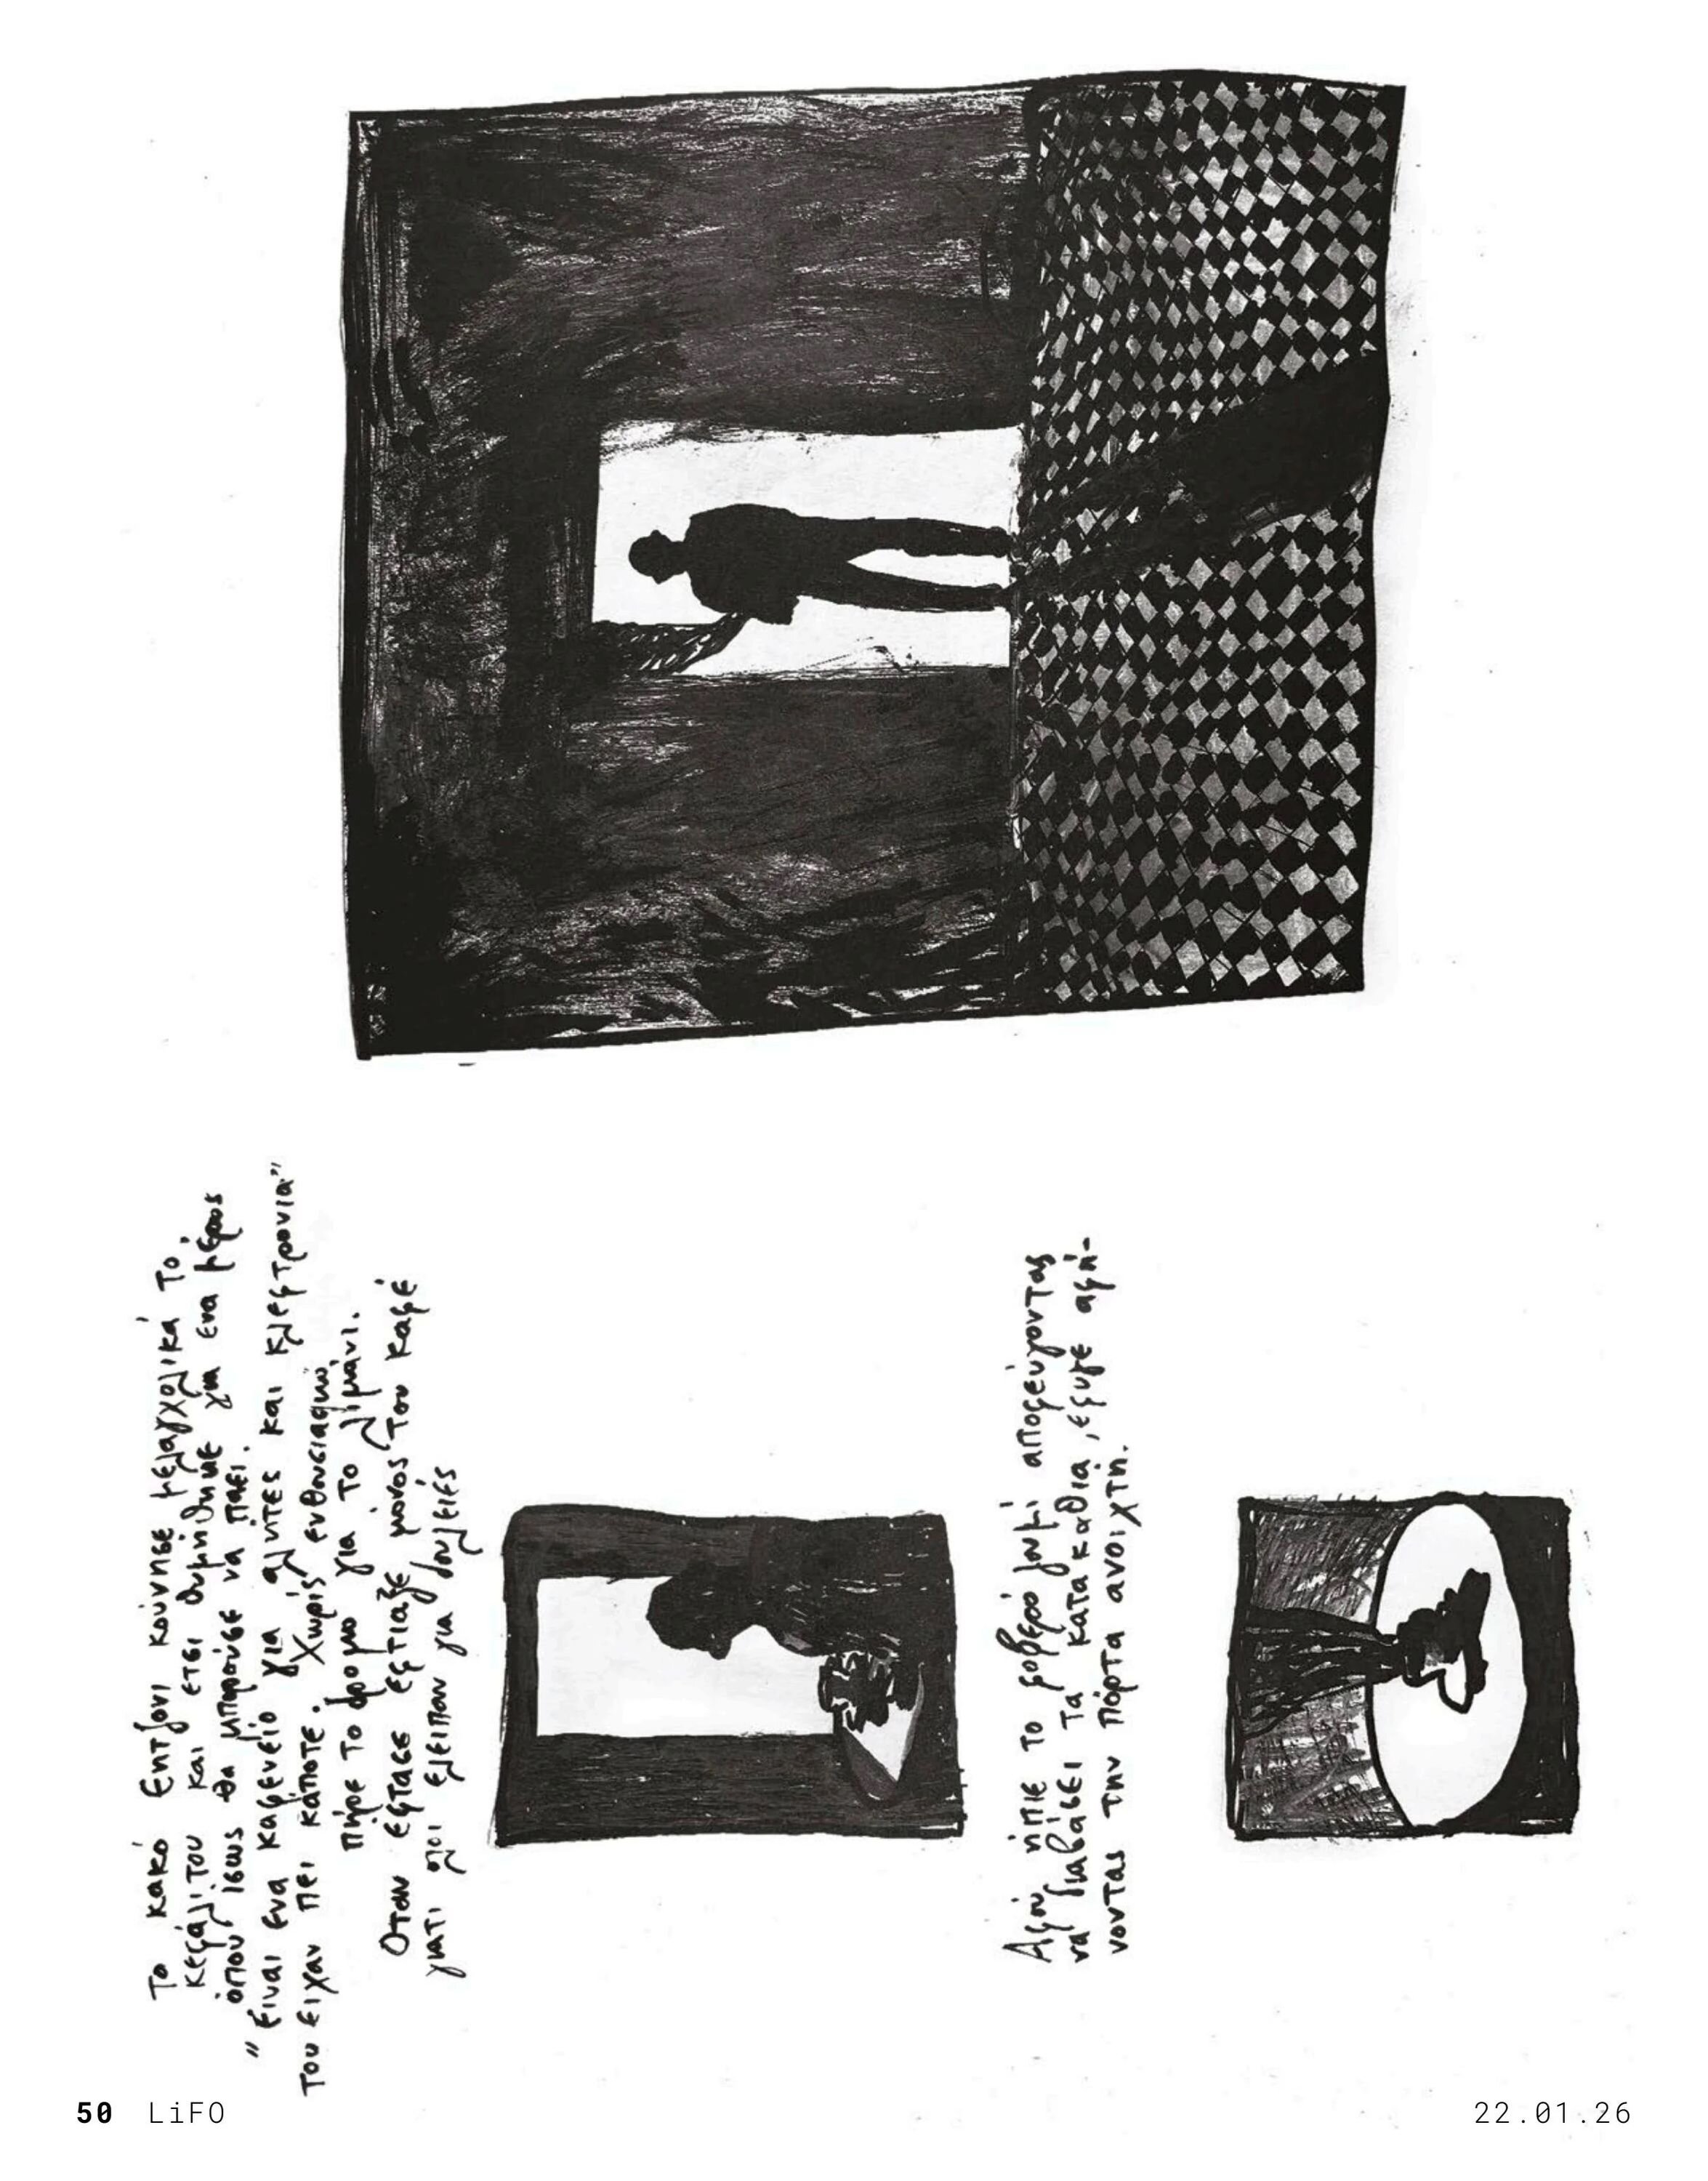 Το κακό εντζονι κούνησε μελαγχολικά το
κεφάλι του και ετσι θυμήθηκε για ενα μέρος
όπου ίσως θα μπορούσε να πάει.
"Ειναι ενα καφενείο για αλητες και κλεφτρονια"
του ειχαν πει κάποτε. Χωρίς ενθουσιασμό
πήρε το δρομο για το λιμάνι.
Οταν εφτασε εφτιαξε μονος του καφέ
γιατι ολοι ελειπαν για δουλειές
Αφού ήπιε το φοβερό ζουμί αποφεύγοντας
να διαβάσει τα κατακάθια, εφυγε αφή-
νοντας την πόρτα ανοιχτή.
50 LiFO
22.01.26